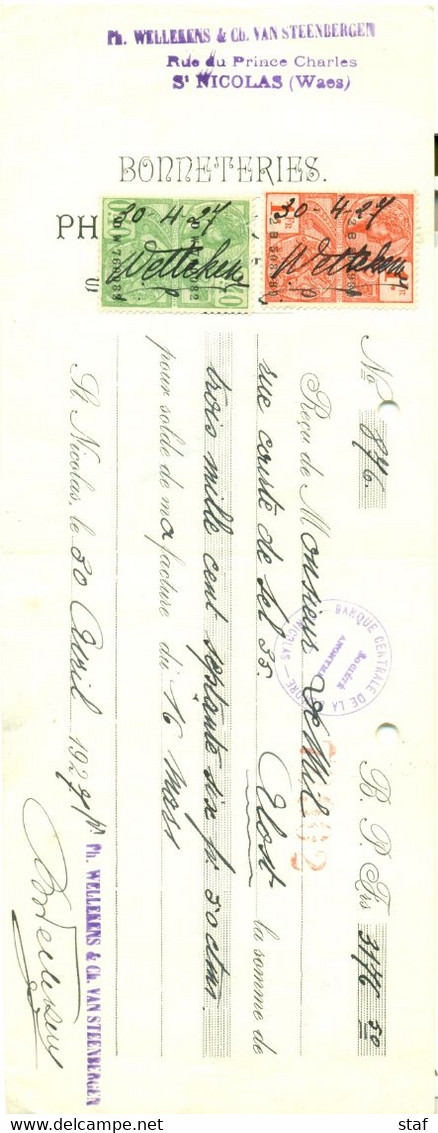 Ph. WELLEKENS & Ch. VAN STEENBERGEN
Rue du Prince Charles
St NICOLAS (Waes)
BONNETERIES.
PH
30-4-27
Wellekens
30-4-27
Wellekens
No 876.
B. P. Frs 3176 50
Reçu de Monsieur De Wil
rue courte de sel 35. Alost la somme de
trois mille cent septante six fr 50 ctms.
pour solde de ma facture du 16 Mars
St Nicolas, le 30 Avril 1927
BANQUE CENTRALE DE LA
SOCIÉTÉ
ANONYME
Ph. WELLEKENS & Ch. VAN STEENBERGEN
staf